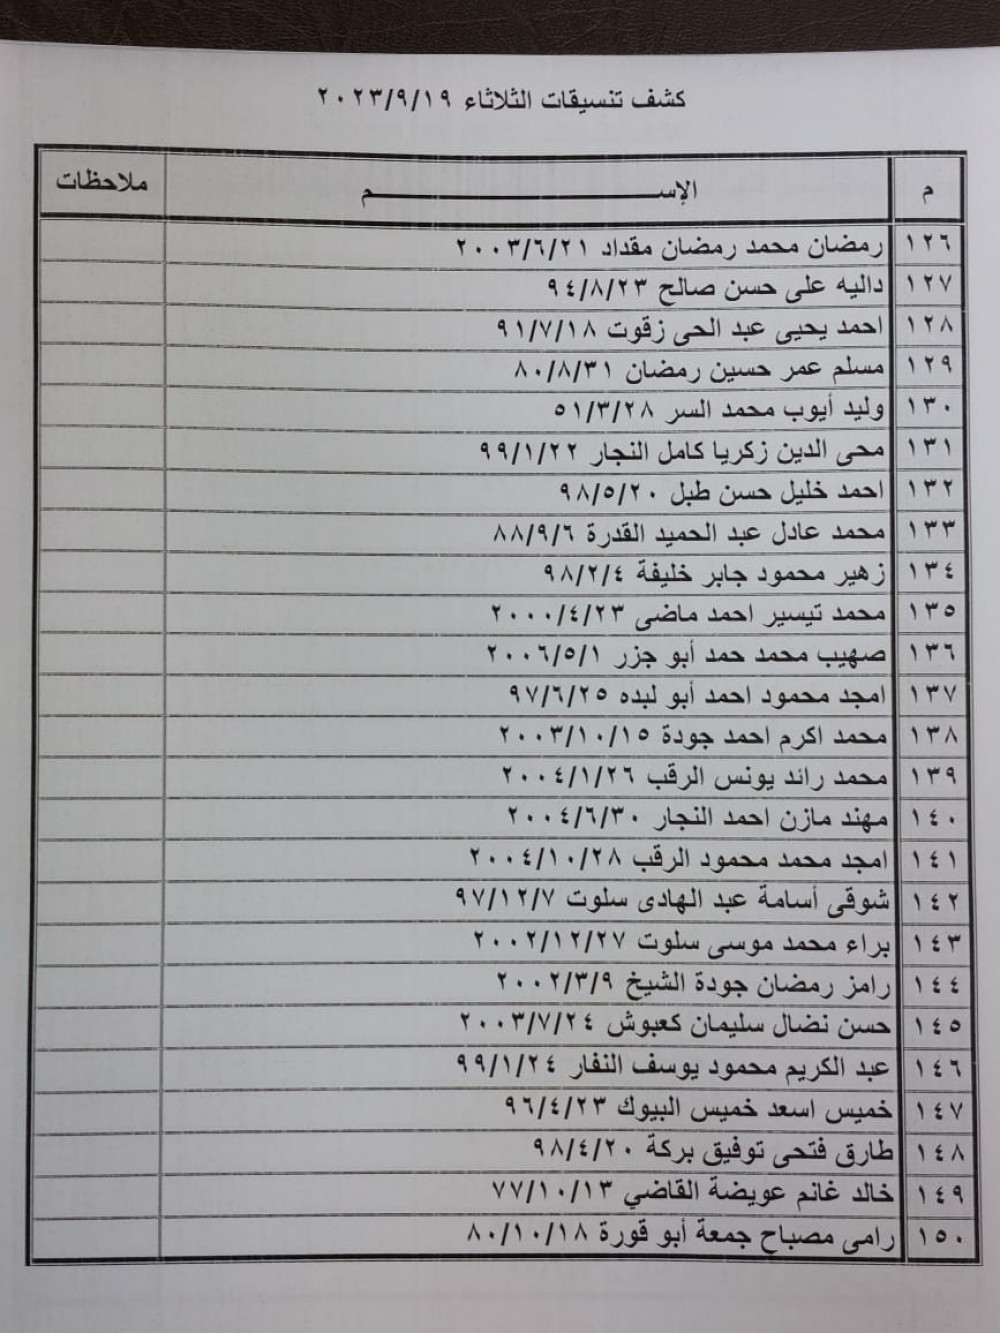 كشف تنسيقات الثلاثاء ٢٠٢٣/٩/١٩
م الإســـــــــم ملاحظات
١٢٦ رمضان محمد رمضان مقداد ٢٠٠٣/٦/٢١
١٢٧ داليه على حسن صالح ٩٤/٨/٢٣
١٢٨ احمد يحيى عبد الحى زقوت ٩١/٧/١٨
١٢٩ مسلم عمر حسين رمضان ٨٠/٨/٣١
١٣٠ وليد أيوب محمد السر ٥١/٣/٢٨
١٣١ محى الدين زكريا كامل النجار ٩٩/١/٢٢
١٣٢ احمد خليل حسن طبل ٩٨/٥/٢٠
١٣٣ محمد عادل عبد الحميد القدرة ٨٨/٩/٦
١٣٤ زهير محمود جابر خليفة ٩٨/٢/٤
١٣٥ محمد تيسير احمد ماضى ٢٠٠٠/٤/٢٣
١٣٦ صهيب محمد حمد أبو جزر ٢٠٠٦/٥/١
١٣٧ امجد محمود احمد أبو لبده ٩٧/٦/٢٥
١٣٨ محمد اكرم احمد جودة ٢٠٠٣/١٠/١٥
١٣٩ محمد رائد يونس الرقب ٢٠٠٤/١/٢٦
١٤٠ مهند مازن احمد النجار ٢٠٠٤/٦/٣٠
١٤١ امجد محمد محمود الرقب ٢٠٠٤/١٠/٢٨
١٤٢ شوقى أسامة عبد الهادى سلوت ٩٧/١٢/٧
١٤٣ براء محمد موسى سلوت ٢٠٠٢/١٢/٢٧
١٤٤ رامز رمضان جودة الشيخ ٢٠٠٢/٣/٩
١٤٥ حسن نضال سليمان كعبوش ٢٠٠٣/٧/٢٤
١٤٦ عبد الكريم محمود يوسف النفار ٩٩/١/٢٤
١٤٧ خميس اسعد خميس البيوك ٩٦/٤/٢٣
١٤٨ طارق فتحى توفيق بركة ٩٨/٤/٢٠
١٤٩ خالد غانم عويضة القاضي ٧٧/١٠/١٣
١٥٠ رامى مصباح جمعة أبو قورة ٨٠/١٠/١٨